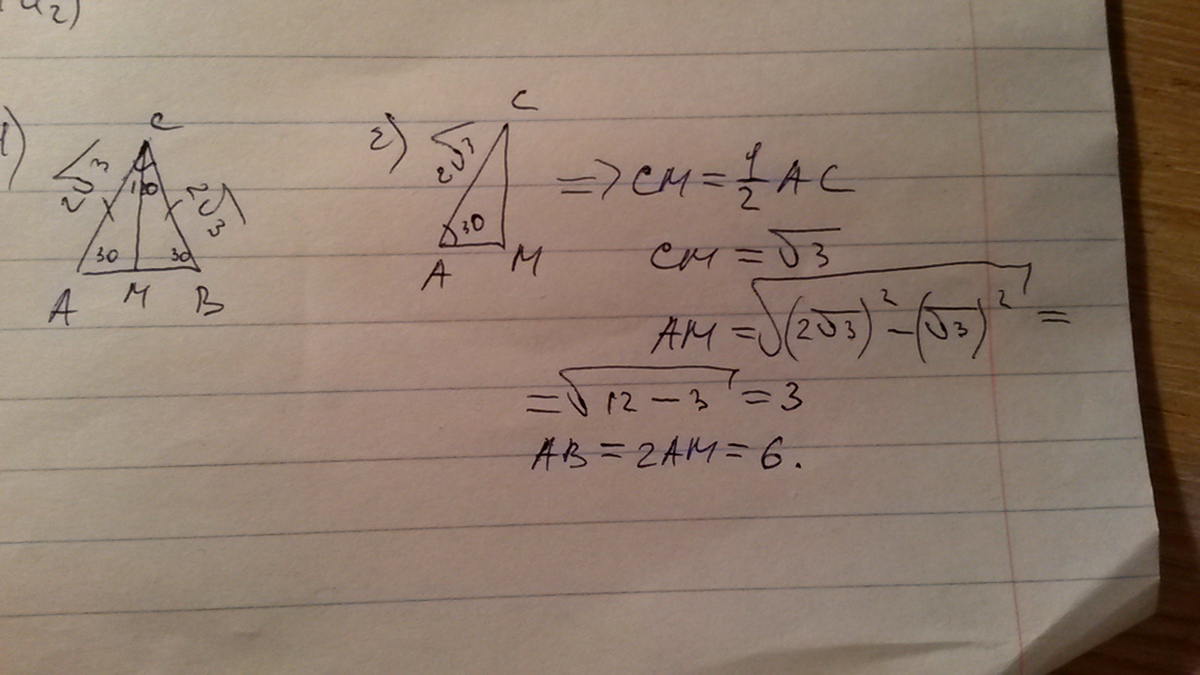 1)
C
2√3
120
2√3
30
30
A
M
B
2)
C
2√3
30
A
M
=> CM = 1/2 AC
CM = √3
AM = √((2√3)² - (√3)²) =
= √(12 - 3) = 3
AB = 2AM = 6.